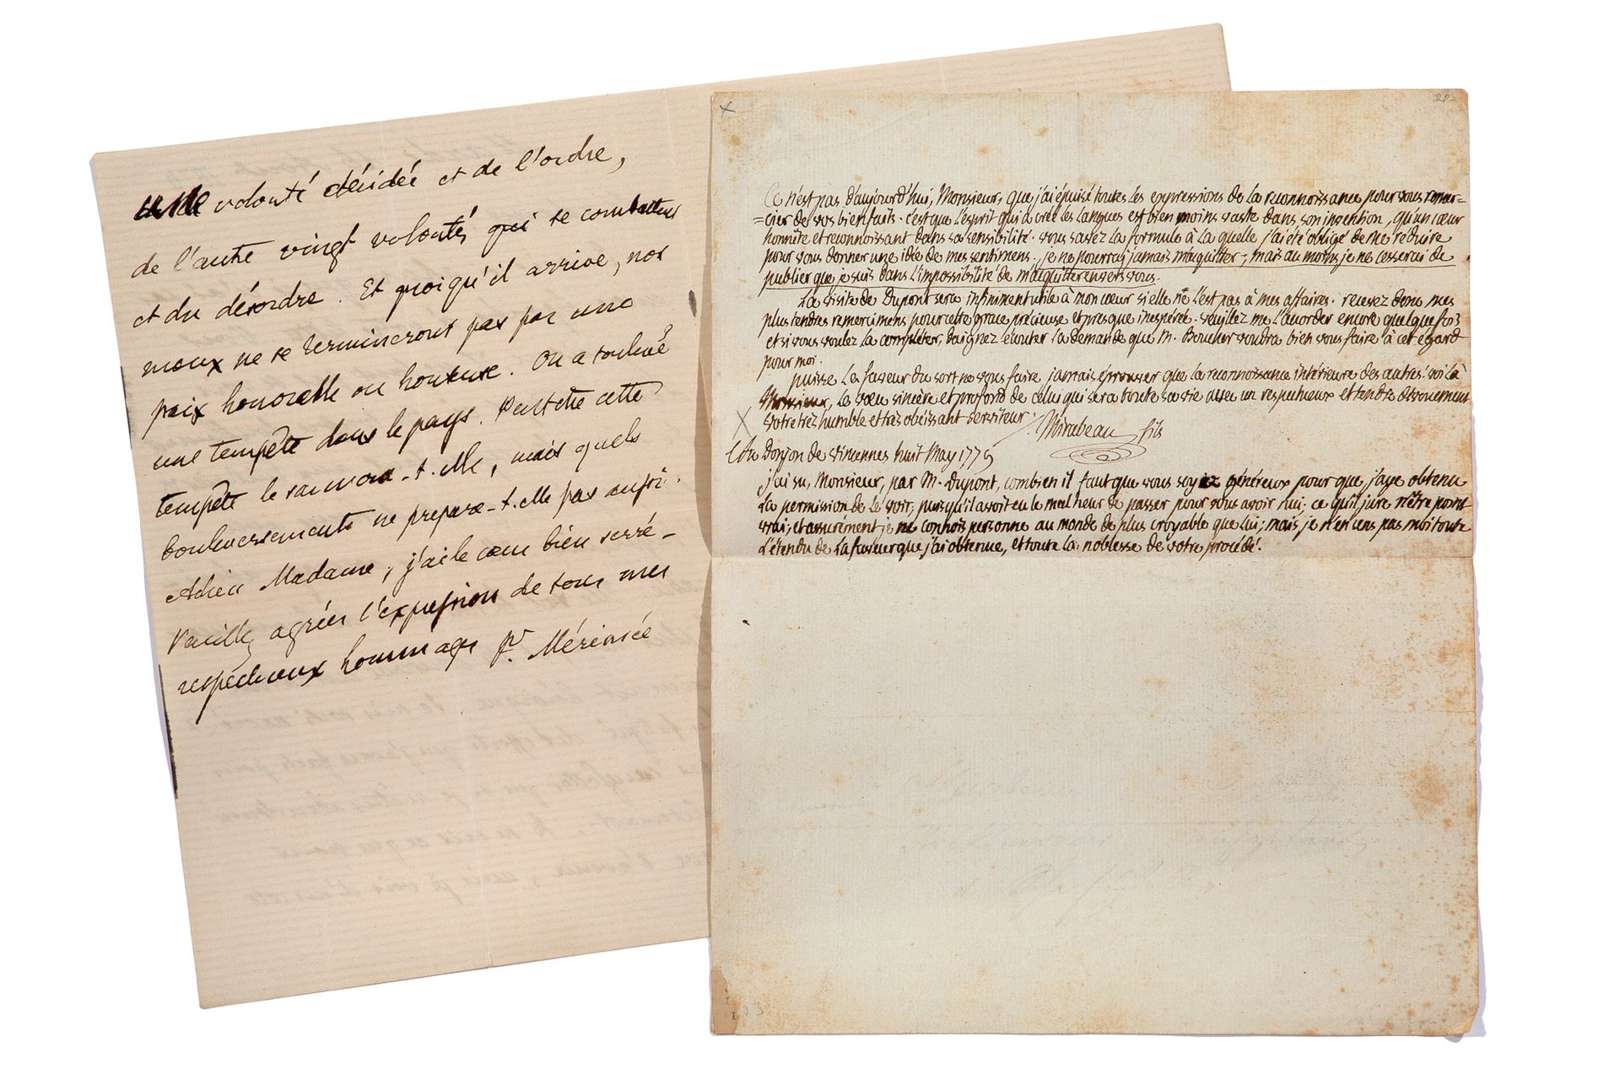 une volonté décidée et de l'ordre,
de l'autre vingt volontés qui se combattent
et du désordre. Et quoiqu'il arrive, nos
maux ne se termineront pas par une
paix honorable ou honteuse. On a soulevé
une tempête dans le pays. Peutetre cette
tempête le sauvera-t-elle, mais quels
bouleversements ne prepare-t-elle pas aussi.
Adieu Madame, j'ai le cœur bien serré –
Veuillez agréer l'expression de tous mes
respectueux hommages Pr. Mérimée
Ce n'est pas d'aujourd'hui, Monsieur, que j'ai épuisé toutes les expressions de la reconnoissance pour vous remer-
=cier de vos bienfaits. c'est que l'esprit qui a créé les langues est bien moins vaste dans son invention, qu'un cœur
honnête et reconnoissant dans sa sensibilité. vous savez la formule à la quelle j'ai été obligé de me réduire
pour vous donner une idée de mes sentimens. je ne pourrai jamais m'aquitter, mais au moins je ne cesserai de
publier que je suis dans l'impossibilité de m'aquitter envers vous.
La visite de Dupont sera infiniment utile à mon cœur si elle ne l'est pas à mes affaires. recevez donc mes
plus tendres remercimens pour cette grace précieuse et presque inespérée. veuillez me l'accorder encore quelquefois
et si vous voulez la completer, daignez écouter la demande que M. Boucher voudra bien vous faire à cet égard
pour moi.
puisse la faveur du sort ne vous faire jamais éprouver que la reconnoissance intérieure des autres! voilà
Monsieur, le vœu sincère et profond de celui qui sera toute sa vie avec un respectueux et tendre dévouement
votre très humble et très obéissant serviteur. Mirabeau fils
Du Donjon de Vincennes huit May 1779
j'ai su, Monsieur, par M. Dupont, combien il faut que vous soyez généreux pour que j'aye obtenu
la permission de le voir, puisqu'il avoit eu le malheur de passer pour vous avoir nui. ce qu'il jure n'être point
vrai; et assurement je ne connois personne au monde de plus croyable que lui; mais je n'en sens pas moi toute
l'étendu de la faveur que j'ai obtenue, et toute la noblesse de votre procédé.